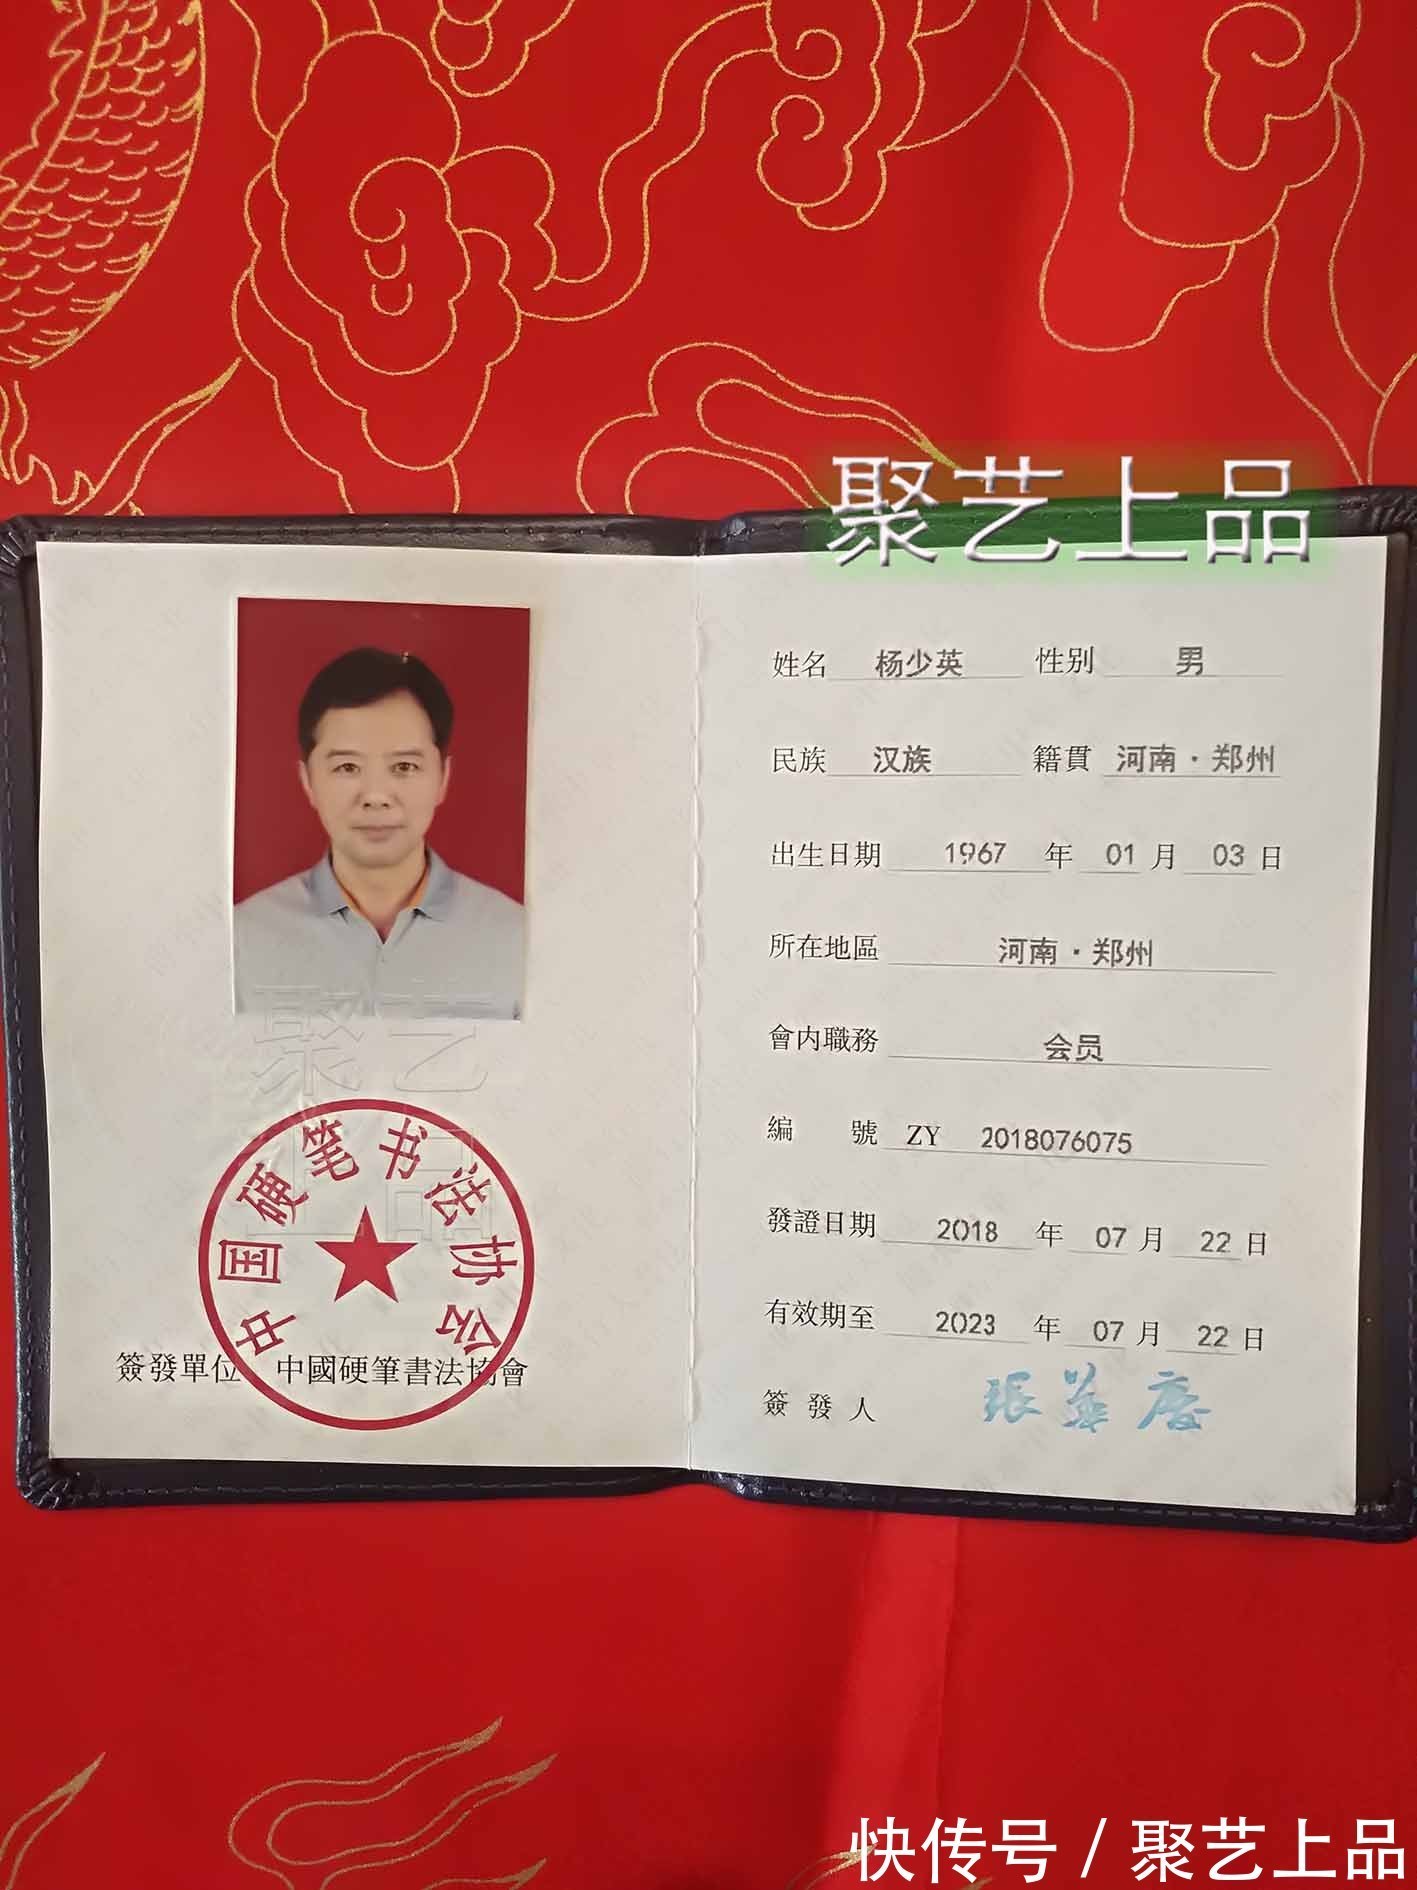 聚艺上品
姓名 杨少英 性别 男
民族 汉族 籍貫 河南·郑州
出生日期 1967 年 01 月 03 日
所在地區 河南·郑州
會内職務 会员
編 號 ZY 2018076075
發證日期 2018 年 07 月 22 日
有效期至 2023 年 07 月 22 日
簽發人 張華慶
聚艺
上品
中国硬笔书法协会
簽發單位 中國硬筆書法協會
快传号 / 聚艺上品